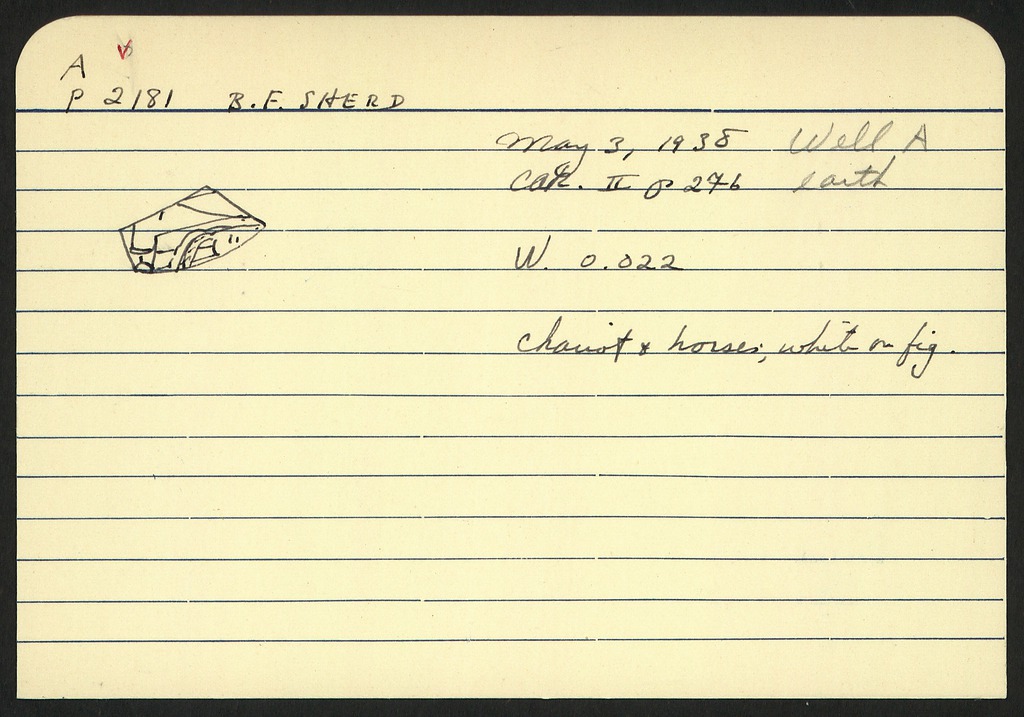 A
P 2181 B.F. SHERD
May 3, 1938 Well A
Cat. II p 276 earth
W. 0.022
chariot & horses; white on fig.